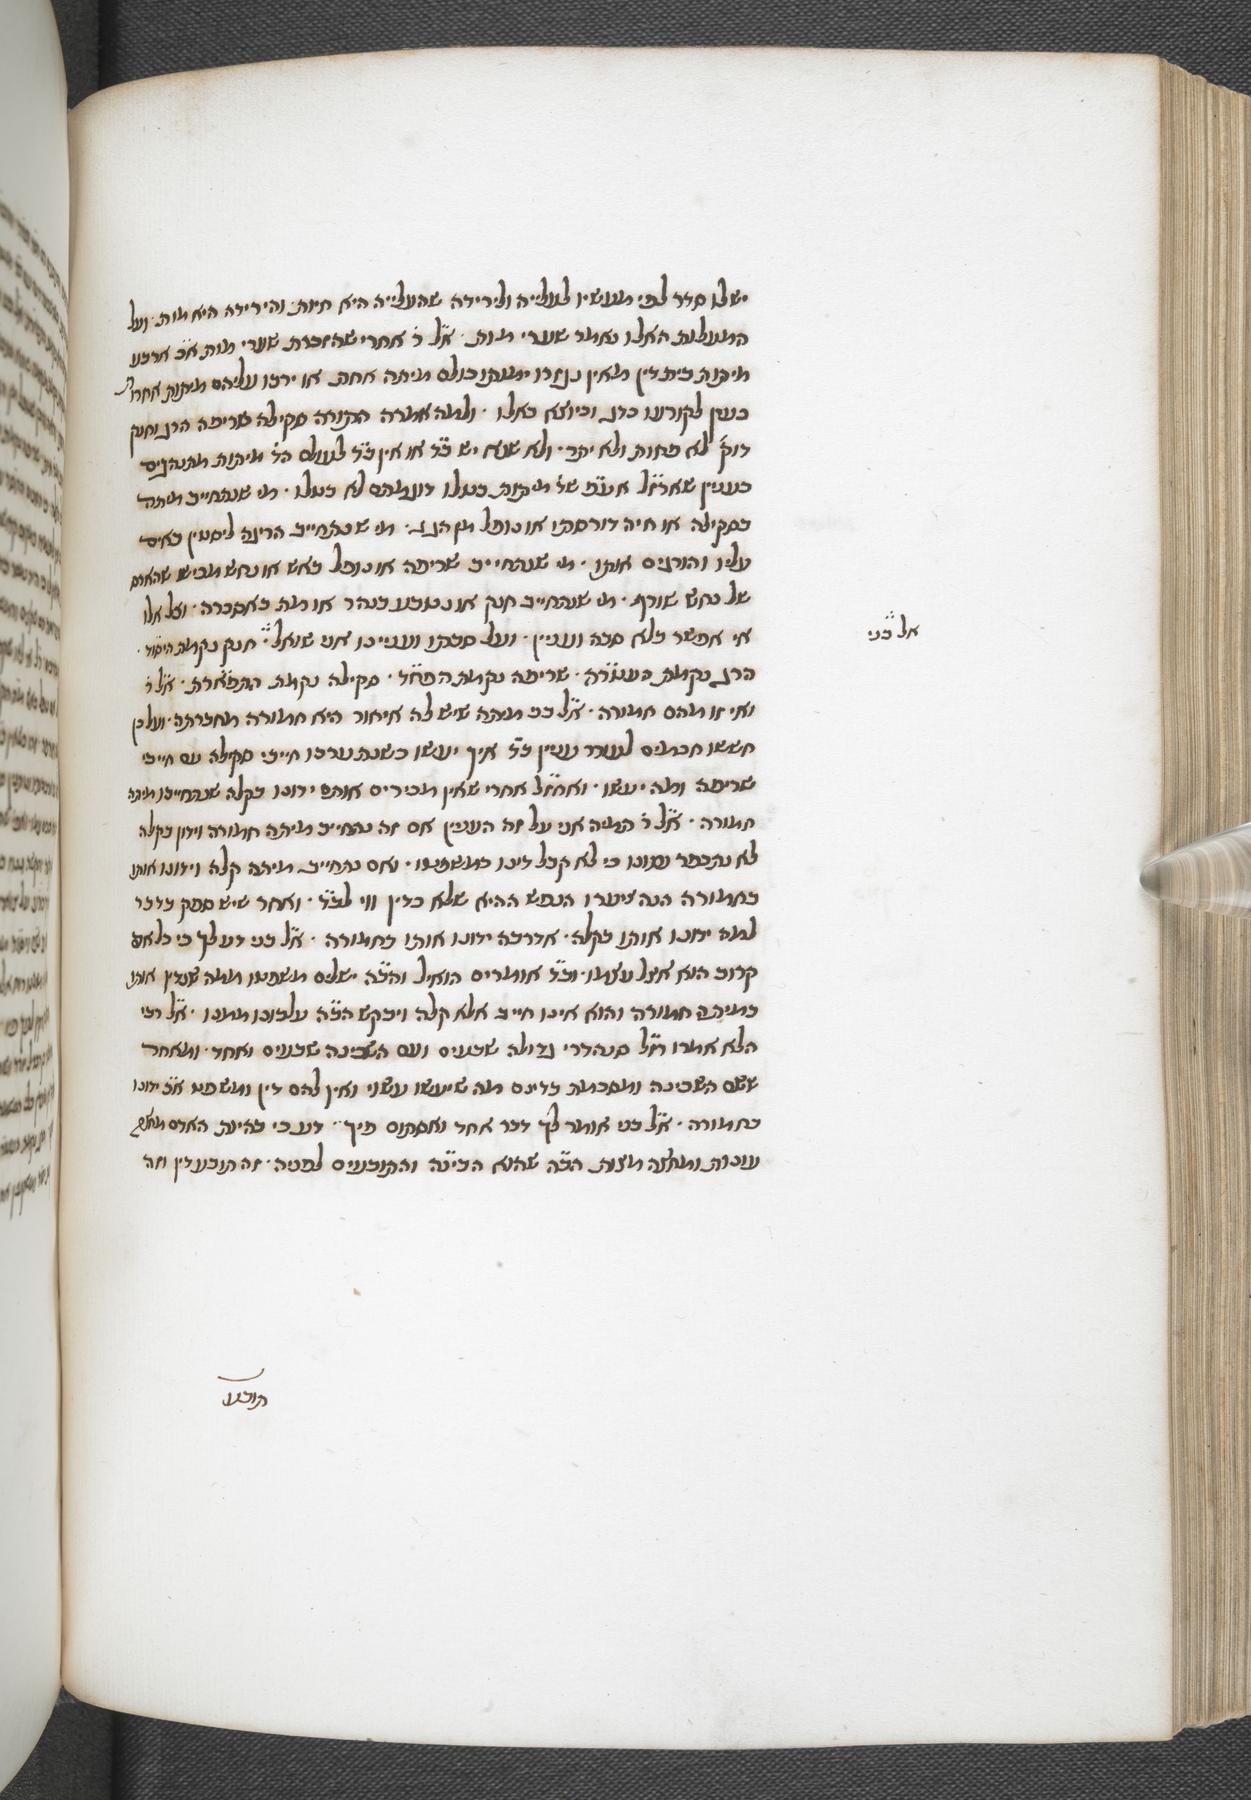 יש לו סדר לפי מעשיו לעלייה ולירידה שהעלייה היא חיות והירידה היא מות ועל
המעלות האלו נאמר שערי מות א״ל ר׳ אחרי שהזכרת שערי מות א״כ ארבע
מיתות בית דין מאין נגזרו ימותו כולם מיתה אחת או ירבו עליהם מיתות אחרות
כגון לקורעו כדג וכיוצא באלו ולמה אמרה התורה סקילה שריפה הרג וחנק
דוק׳ לא פחות ולא יתר ולא שנא יש ב״ד או אין ב״ד לעולם הד׳ מיתות מתנהגים
כענין שארז״ל אע״פ שד׳ מיתות בטלו דוגמתם לא בטלו מי שנתחייב מיתה
בסקילה או חיה דורסתו או נופל מן הגג מי שנתחייב הריגה ליסטין באים
עליו והורגים אותו מי שנתחייב שריפה או נופל באש או נחש מכישו שהארס
של נחש שורף מי שנתחייב חנק או נטבע בנהר או מת באסכרה וכל אלו
אי אפשר בלא סבה וענין ועל סבתו ועניינו אני שואל חנק נקמת היסוד
הרג נקמת העטרה שריפה נקמת הפחד סקילה נקמת התפארת א״ל ר׳
ואי זו מהם חמורה א״ל בני מיתה שיש לה איחור היא חמורה מחברתה ועל כן
חששו חכמים לעורר ענין ב״ד איך יעשו כשנתערבו חייבי סקילה עם חייבי
שריפה ומה יעשו ואחז״ל אחרי שאין מכירים אותם ידונו בקלה שנתחייבו מיתה
חמורה א״ל ר׳ תמיה אני על זה הענין אם זה נתחייב מיתה חמורה וידון בקלה
לא נתכפר עונו כי לא קבל דינו כמשפטו ואם נתחייב מיתה קלה וידונו אותו
בחמורה הנה ציערו הנפש ההיא שלא כדין ווי לב״ד ואחר שיש ספק בדבר
למה ידונו אותו בקלה אדרבה ידונו אותו בחמורה א״ל בני דע לך כי כל אדם
קרוב הוא אצל עצמו וב״ד אומרים הואיל והב״ה ישלים משפטו ממה שנדין אותו
במיתה חמורה והוא אינו חייב אלא קלה ויבקש הב״ה עלבונו ממנו א״ל רבי
הלא אמרו חז״ל סנהדרי גדולה שבעים ועם השכינה שבעים ואחד ומאחר
ששם השכינה ומסכמת בדינם מה שיעשו עשוי ואין להם דין ומשפט א״כ ידונו
בחמורה א״ל בני אומר לך דבר אחד ואסתום פיך דע כי בהיות האדם
עונות ומחצה מצות הב״ה שהוא הבינה והתובעים לפניה זה תובע דין וזה
א״ל בני
תובע